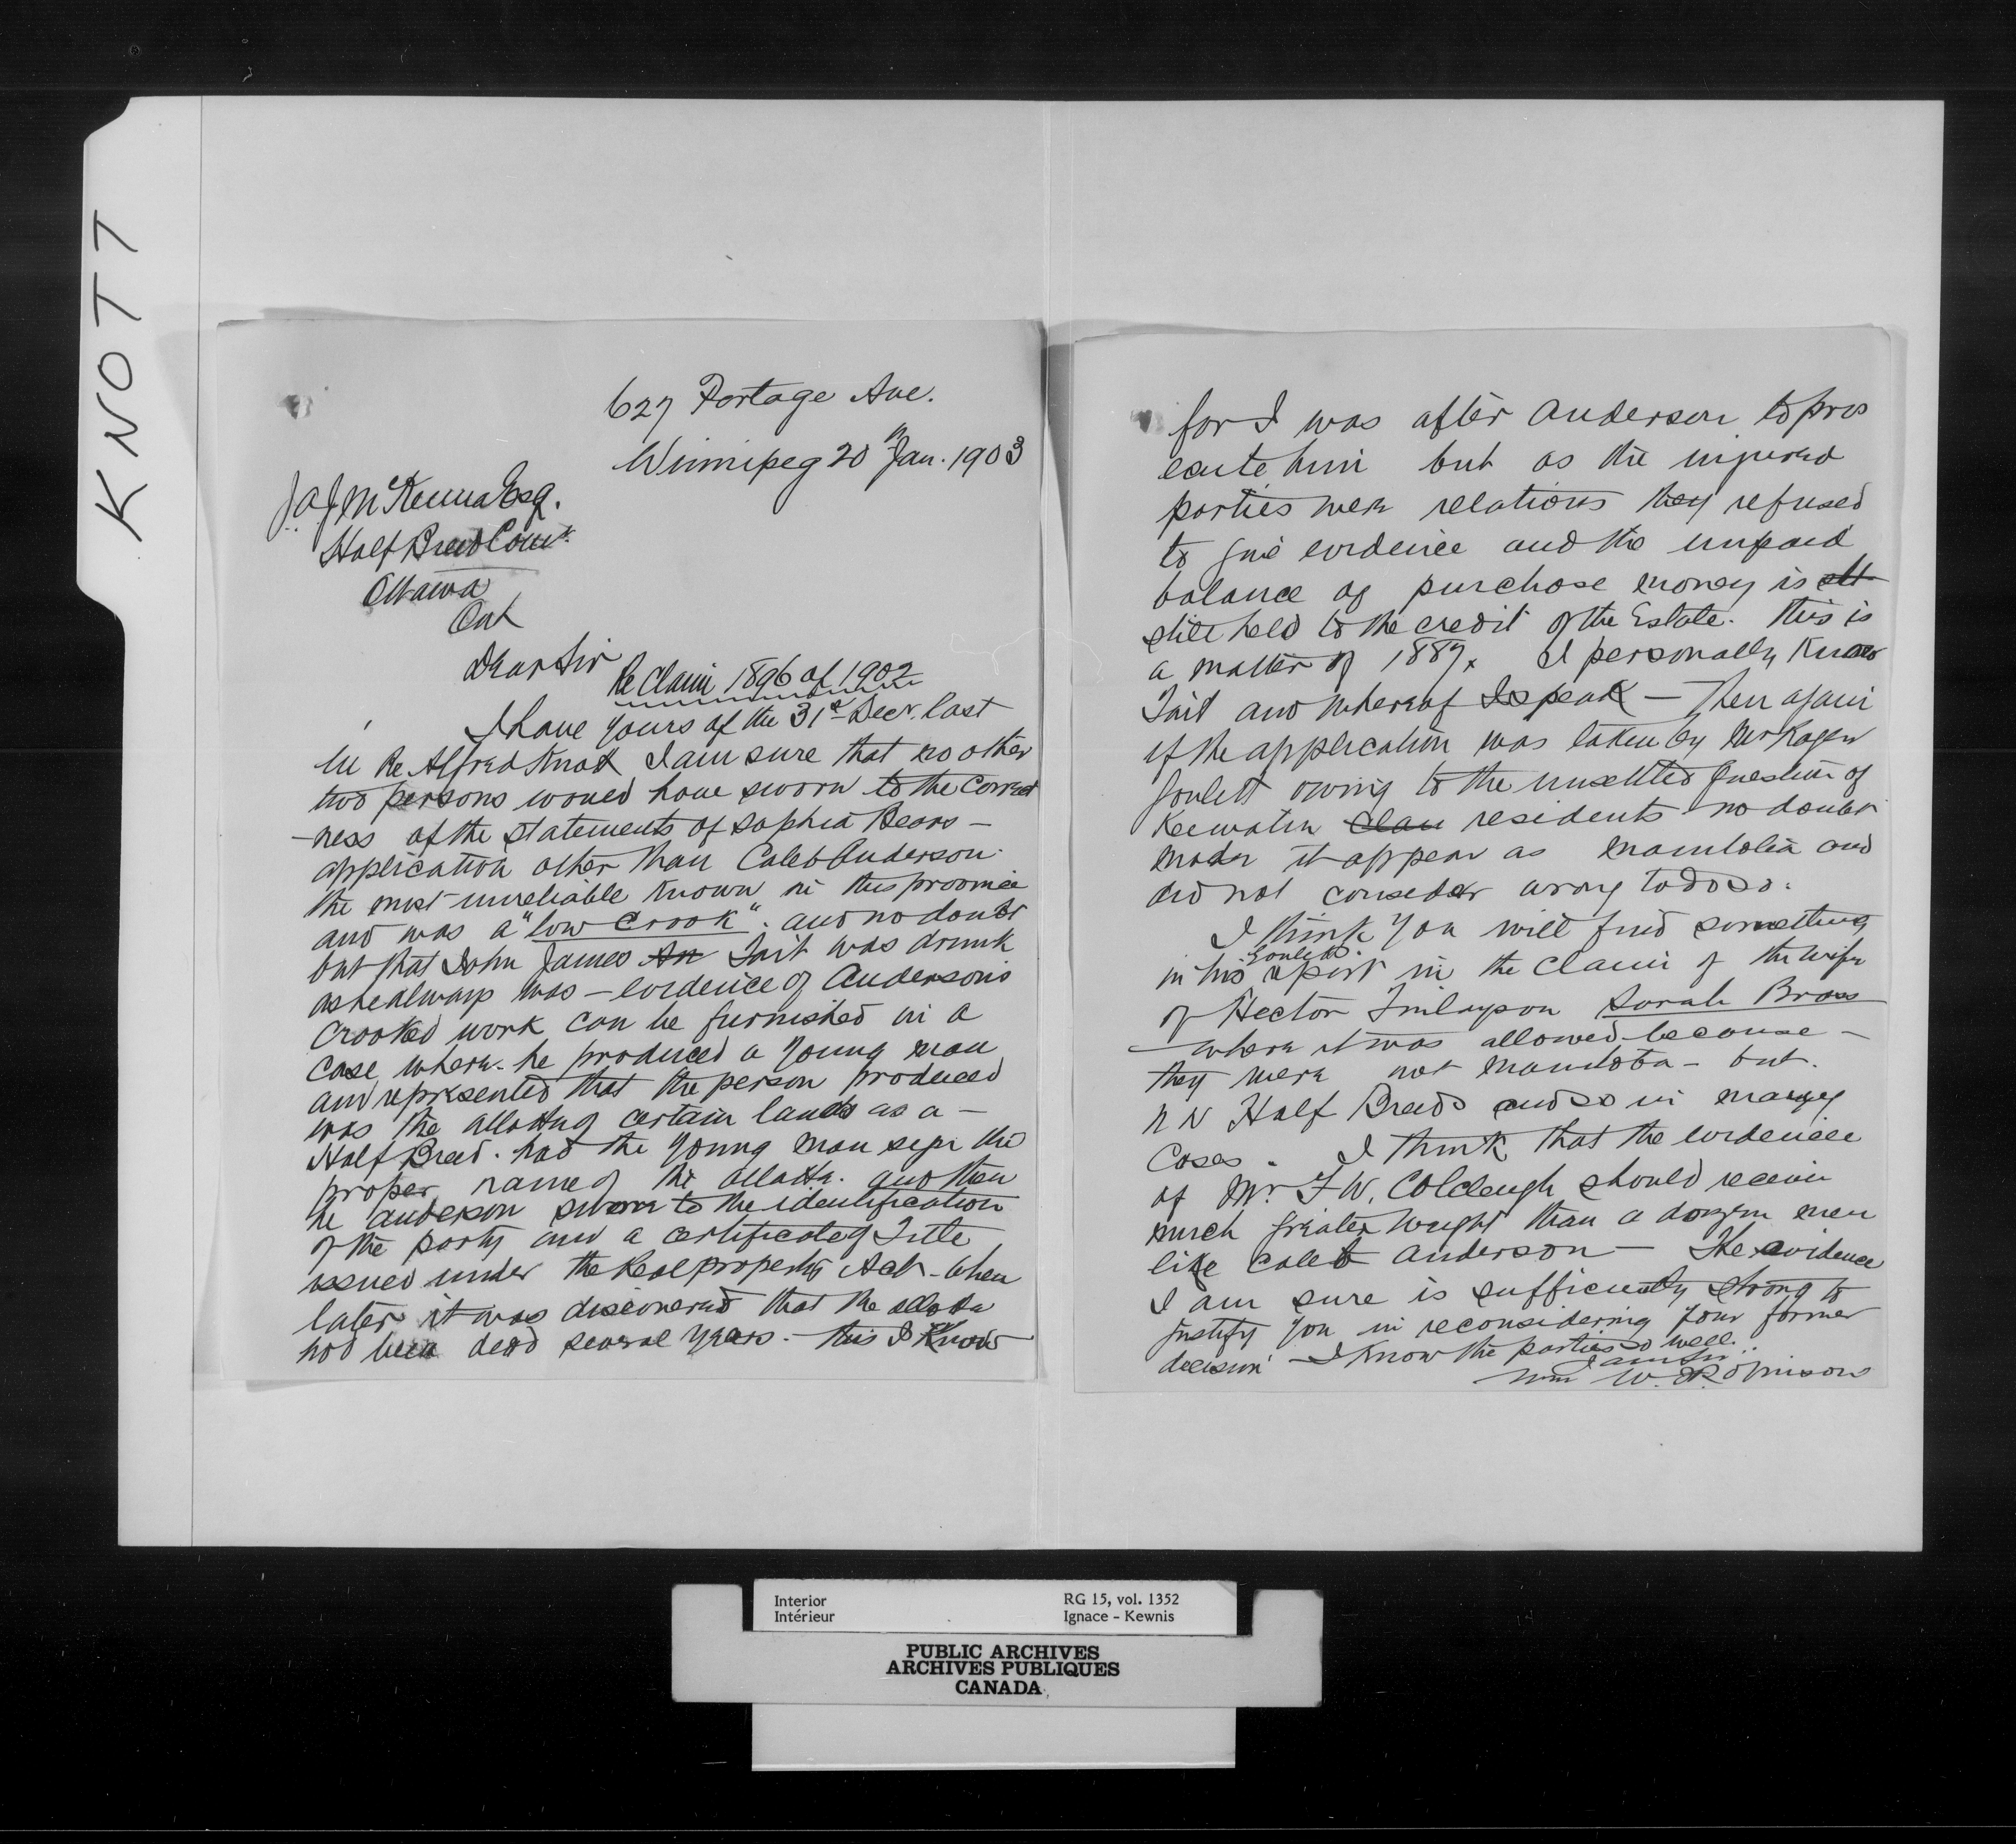 KNOTT
627 Portage Ave.
Winnipeg 20th Jan. 1903
J. A. J. McKenna Esq.
Half Breed Comr.
Ottawa
Ont
Dear Sir
Re Claim 1896 of 1902
I have yours of the 31st Decr. last
in Re Alfred Knott I am sure that no other
two persons would have sworn to the correct
-ness of the statements of Sophia Bears -
application other than Caleb Anderson
the most unreliable known in this province
and was a "low crook". and no doubt
but that John James An Tait was drunk
as he always was - evidence of Andersons
Crooked work can be furnished in a
case where he produced a young man
and represented that the person produced
was the allottee of certain lands as a -
Half Breed. had the young man sign the
proper name of the allottee. and then
he Anderson swore to the identification
of the party and a certificate of Title
issued under the Real property Act - when
later it was discovered that the allottee
had been dead several years. - this I know
for I was after Anderson to pros
ecute him but as the injured
parties were relations they refused
to give evidence and the unpaid
balance of purchase money is
still held to the credit of the Estate. this is
a matter of 1889. I personally know
Tait and whereof I speak - Then again
if the application was taken by Mr Roger
Goulett owing to the unsettled question of
Keewatin Clai residents no doubt
made it appear as Manitoba and
did not consider wrong to do so.
I think you will find something
in his Gouletts report in the claim of the wife
of Hector Finlayson Sarah Brass
where it was allowed because -
they were not Manitoba - but.
N W Half Breeds and so in many
Cases. I think that the evidence
of Mr. F W. Colcleugh should receive
much greater weight than a dozen men
like Caleb Anderson - The evidence
I am sure is sufficiently strong to
justify you in reconsidering your former
decision - I know the parties so well..
I am Sir
Wm W. Robinson
Interior
Intérieur
RG 15, vol. 1352
Ignace - Kewnis
PUBLIC ARCHIVES
ARCHIVES PUBLIQUES
CANADA